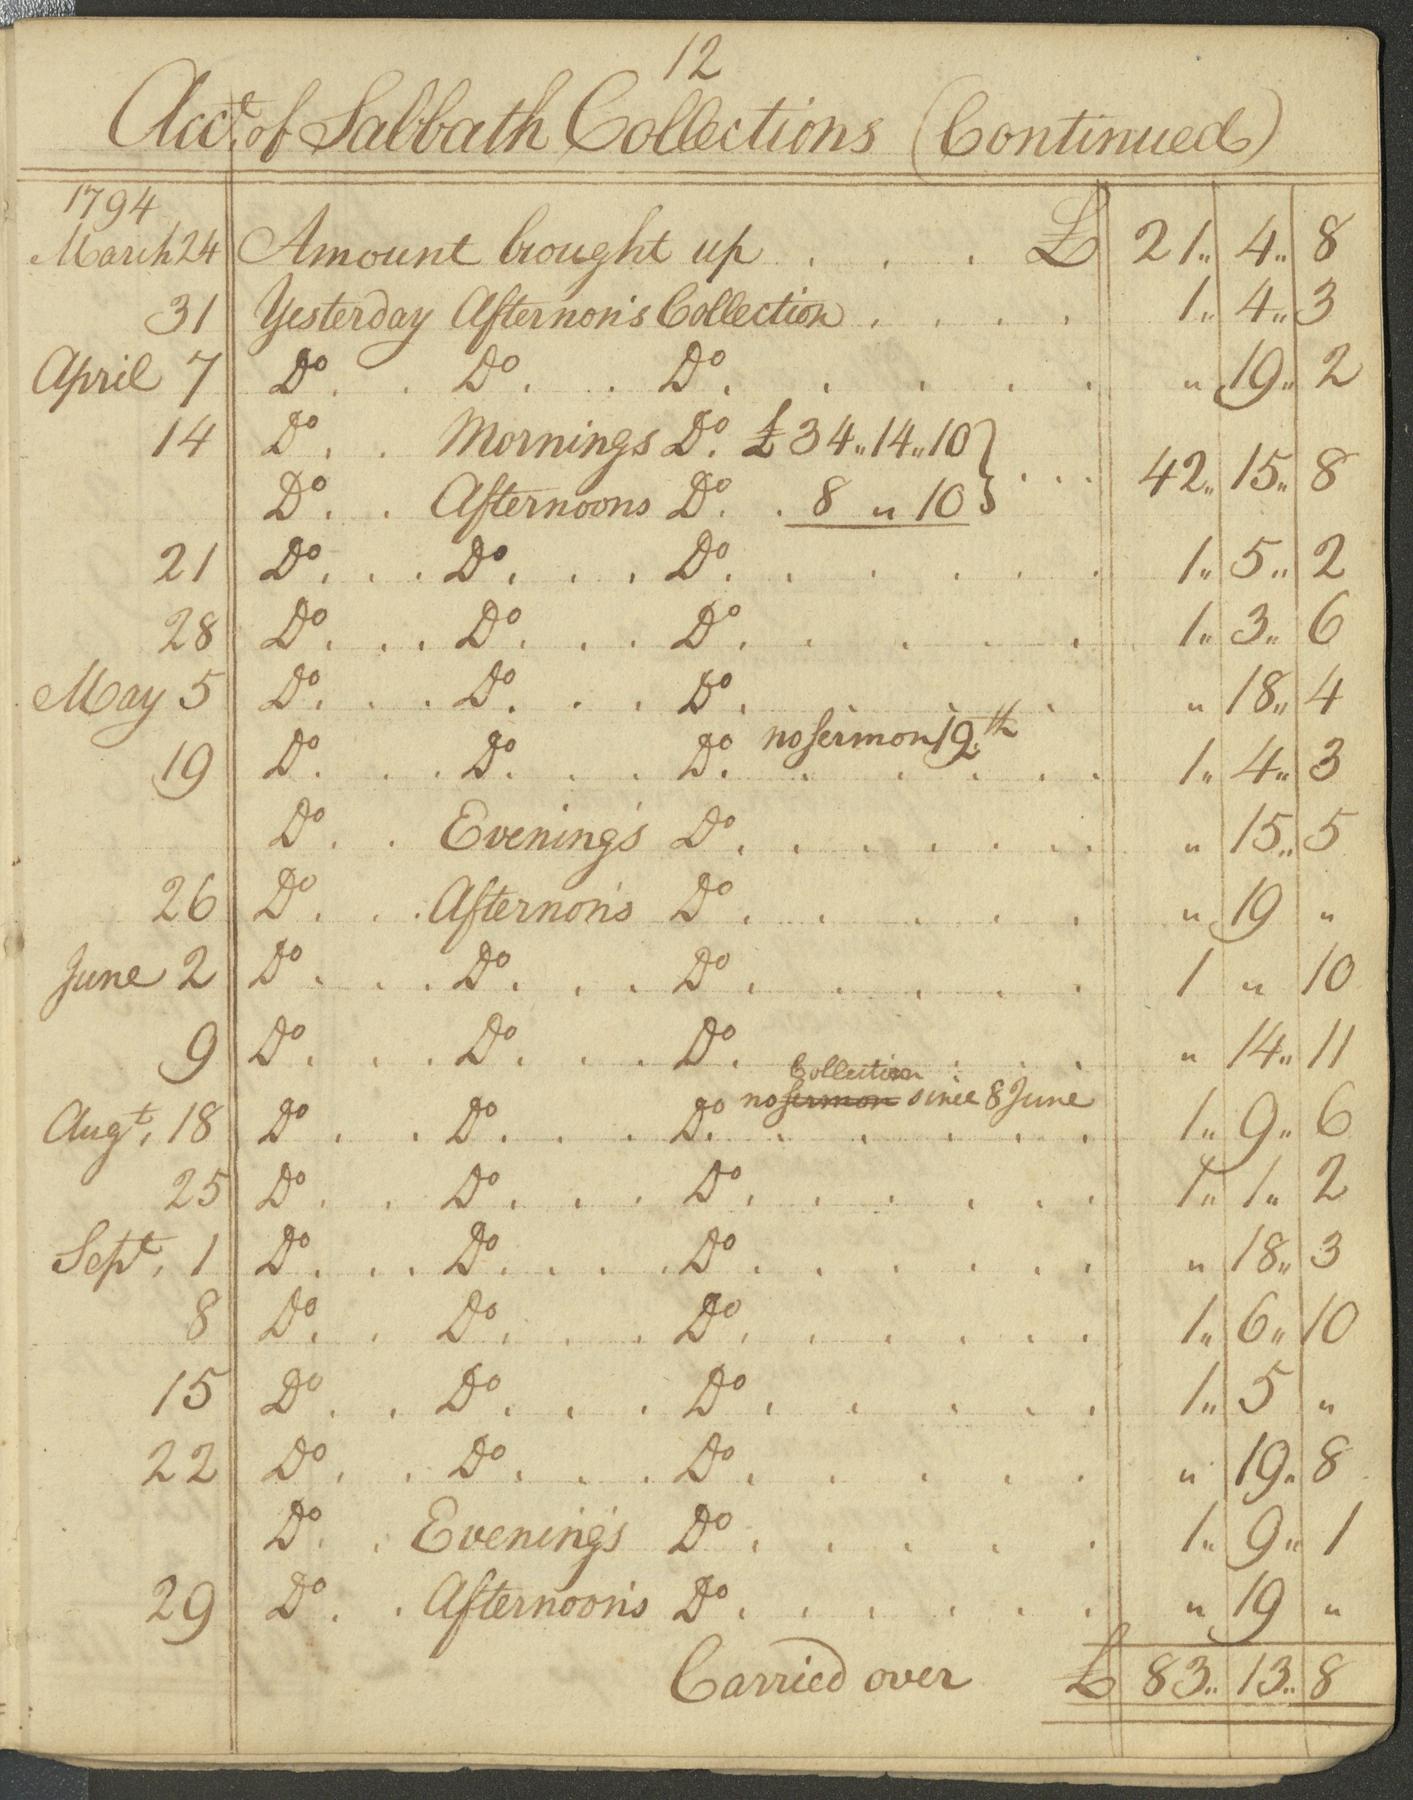 12
Acct. of Sabbath Collections (Continued)
1794
March 24 Amount brought up . . . £ 21 „ 4 „ 8
31 Yesterday Afternon's Collection . . . . 1 „ 4 „ 3
April 7 Do. . Do. . Do. . . . . . „ 19 „ 2
14 Do. . Mornings Do. £ 34 „ 14 „ 10 }
Do. . Afternoons Do. . 8 „ 10 } . . . 42 „ 15 „ 8
21 Do. . . Do. . . . Do. . . . . . 1 „ 5 „ 2
28 Do. . . Do. . . Do. . . . . . 1 „ 3 „ 6
May 5 Do. . . Do. . . Do. . „ 18 „ 4
no Sermon 12th
19 Do. . . Do. . . Do. . . . . . 1 „ 4 „ 3
Do. . Evening's Do. . . . . . . „ 15 „ 5
26 Do. . . Afternon's Do. . . . . . „ 19 „
June 2 Do . . . Do. . . Do. . . . . . 1 „ 10
9 Do. . . Do. . . . Do. . . . „ 14 „ 11
Collection
no sermon since 8 June
Augt. 18 Do . . Do. . . Do. . . . . . 1 „ 9 „ 6
25 Do. . Do. . . Do. . . . . . 1 „ 1 „ 2
Sept. 1 Do. . . Do. . . . Do. . . . . . „ 18 „ 3
8 Do. . Do. . . Do. . . . . . 1 „ 6 „ 10
15 Do. . Do. . . . Do. . . . . 1 „ 5 „
22 Do. . Do. . . . Do. . . . . „ 19 „ 8
Do. . Evening's Do. . . . . 1 „ 9 „ 1
29 Do. . Afternoon's Do. . . . . . „ 19 „
Carried over £ 83 „ 13 „ 8